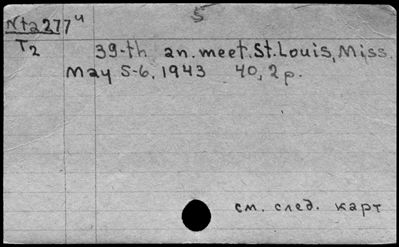 5
Nta277ч
T2
39-th an. meet. St. Louis, Miss.
May 5-6, 1943 40, 2 p.
см. след. карт